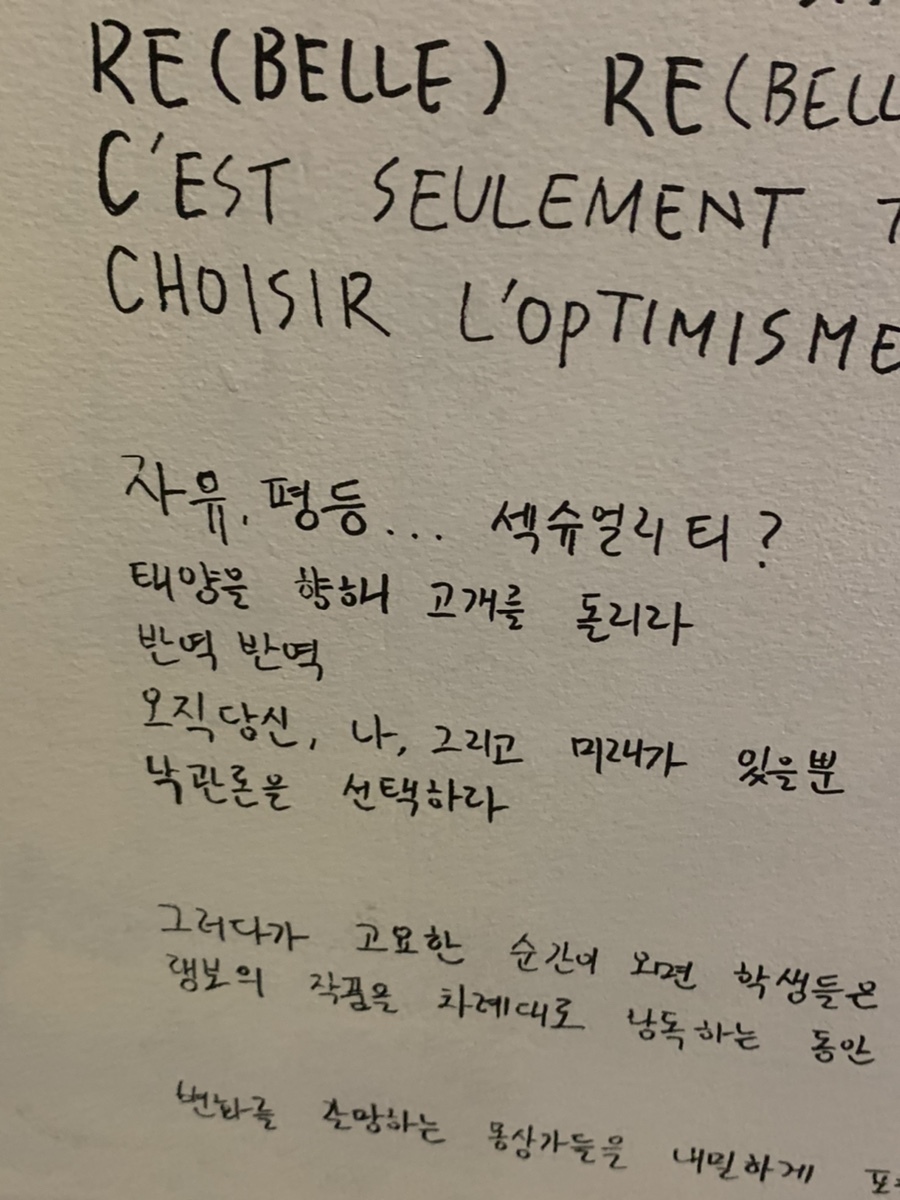 RE(BELLE) RE(BELL
C'EST SEULEMENT T
CHOISIR L'OPTIMISME
자유, 평등... 섹슈얼리티?
태양을 향해 고개를 돌리라
반역 반역
오직 당신, 나, 그리고 미래가 있을뿐
낙관론을 선택하라
그러다가 고요한 순간이 오면 학생들은
랭보의 작품을 차례대로 낭독하는 동안
변화를 갈망하는 몽상가들을 내밀하게